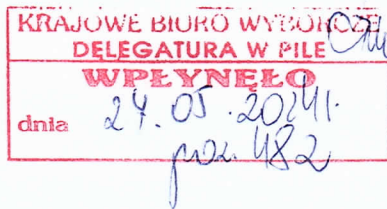 KRAJOWE BIURO WYBORCZE
DELEGATURA W PILE
WPŁYNĘŁO
dnia 24.05.2024r.
poz. 482